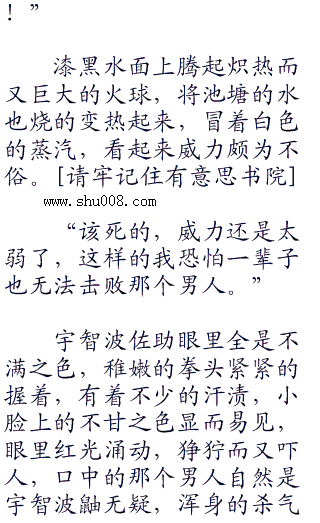 ！”
漆黑水面上腾起炽热而
又巨大的火球，将池塘的水
也烧的变热起来，冒着白色
的蒸汽，看起来威力颇为不
俗。[请牢记住有意思书院]
www.shu008.com
“该死的，威力还是太
弱了，这样的我恐怕一辈子
也无法击败那个男人。”
宇智波佐助眼里全是不
满之色，稚嫩的拳头紧紧的
握着，有着不少的汗渍，小
脸上的不甘之色显而易见，
眼里红光涌动，狰狞而又吓
人，口中的那个男人自然是
宇智波鼬无疑，浑身的杀气